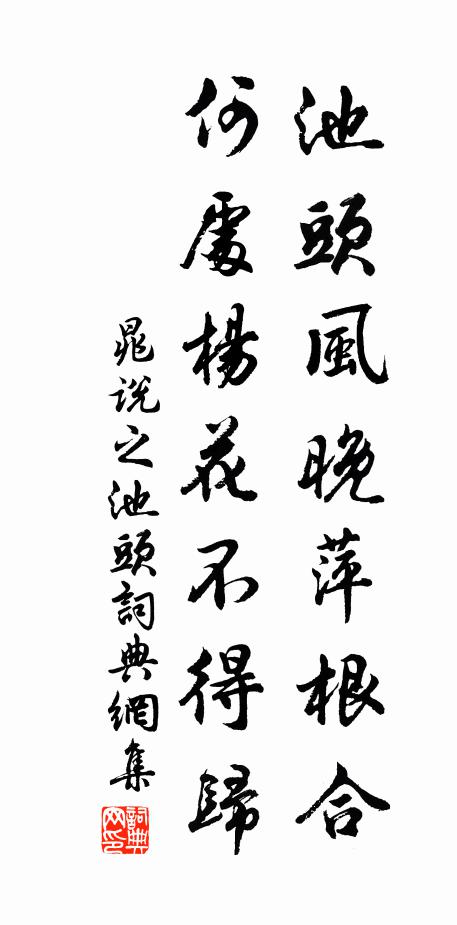 池頭風晚萍根合
何處楊花不得歸
晁說之池頭詞典網集
詞典网印